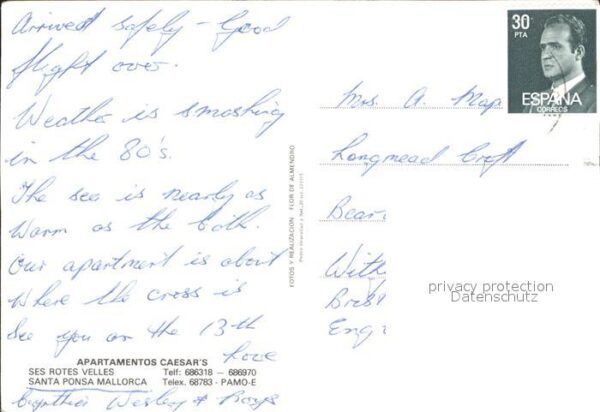 Arrived safely - Good
flight over.
Weather is smashing
in the 80's.
The sea is nearly as
warm as the bath.
Our apartment is about
where the cross is
See you on the 13th
Love
Wesley &
APARTAMENTOS CAESAR'S
SES ROTES VELLES Telf: 686318 – 686970
SANTA PONSA MALLORCA Telex. 68783 - PAMO-E
FOTOS Y REALIZACION FLOR DE ALMENDRO
30
PTA
ESPAÑA
CORREOS
Mrs. A. Map
Longmead Croft
Bear
With
Brist
Eng
privacy protection
Datenschutz